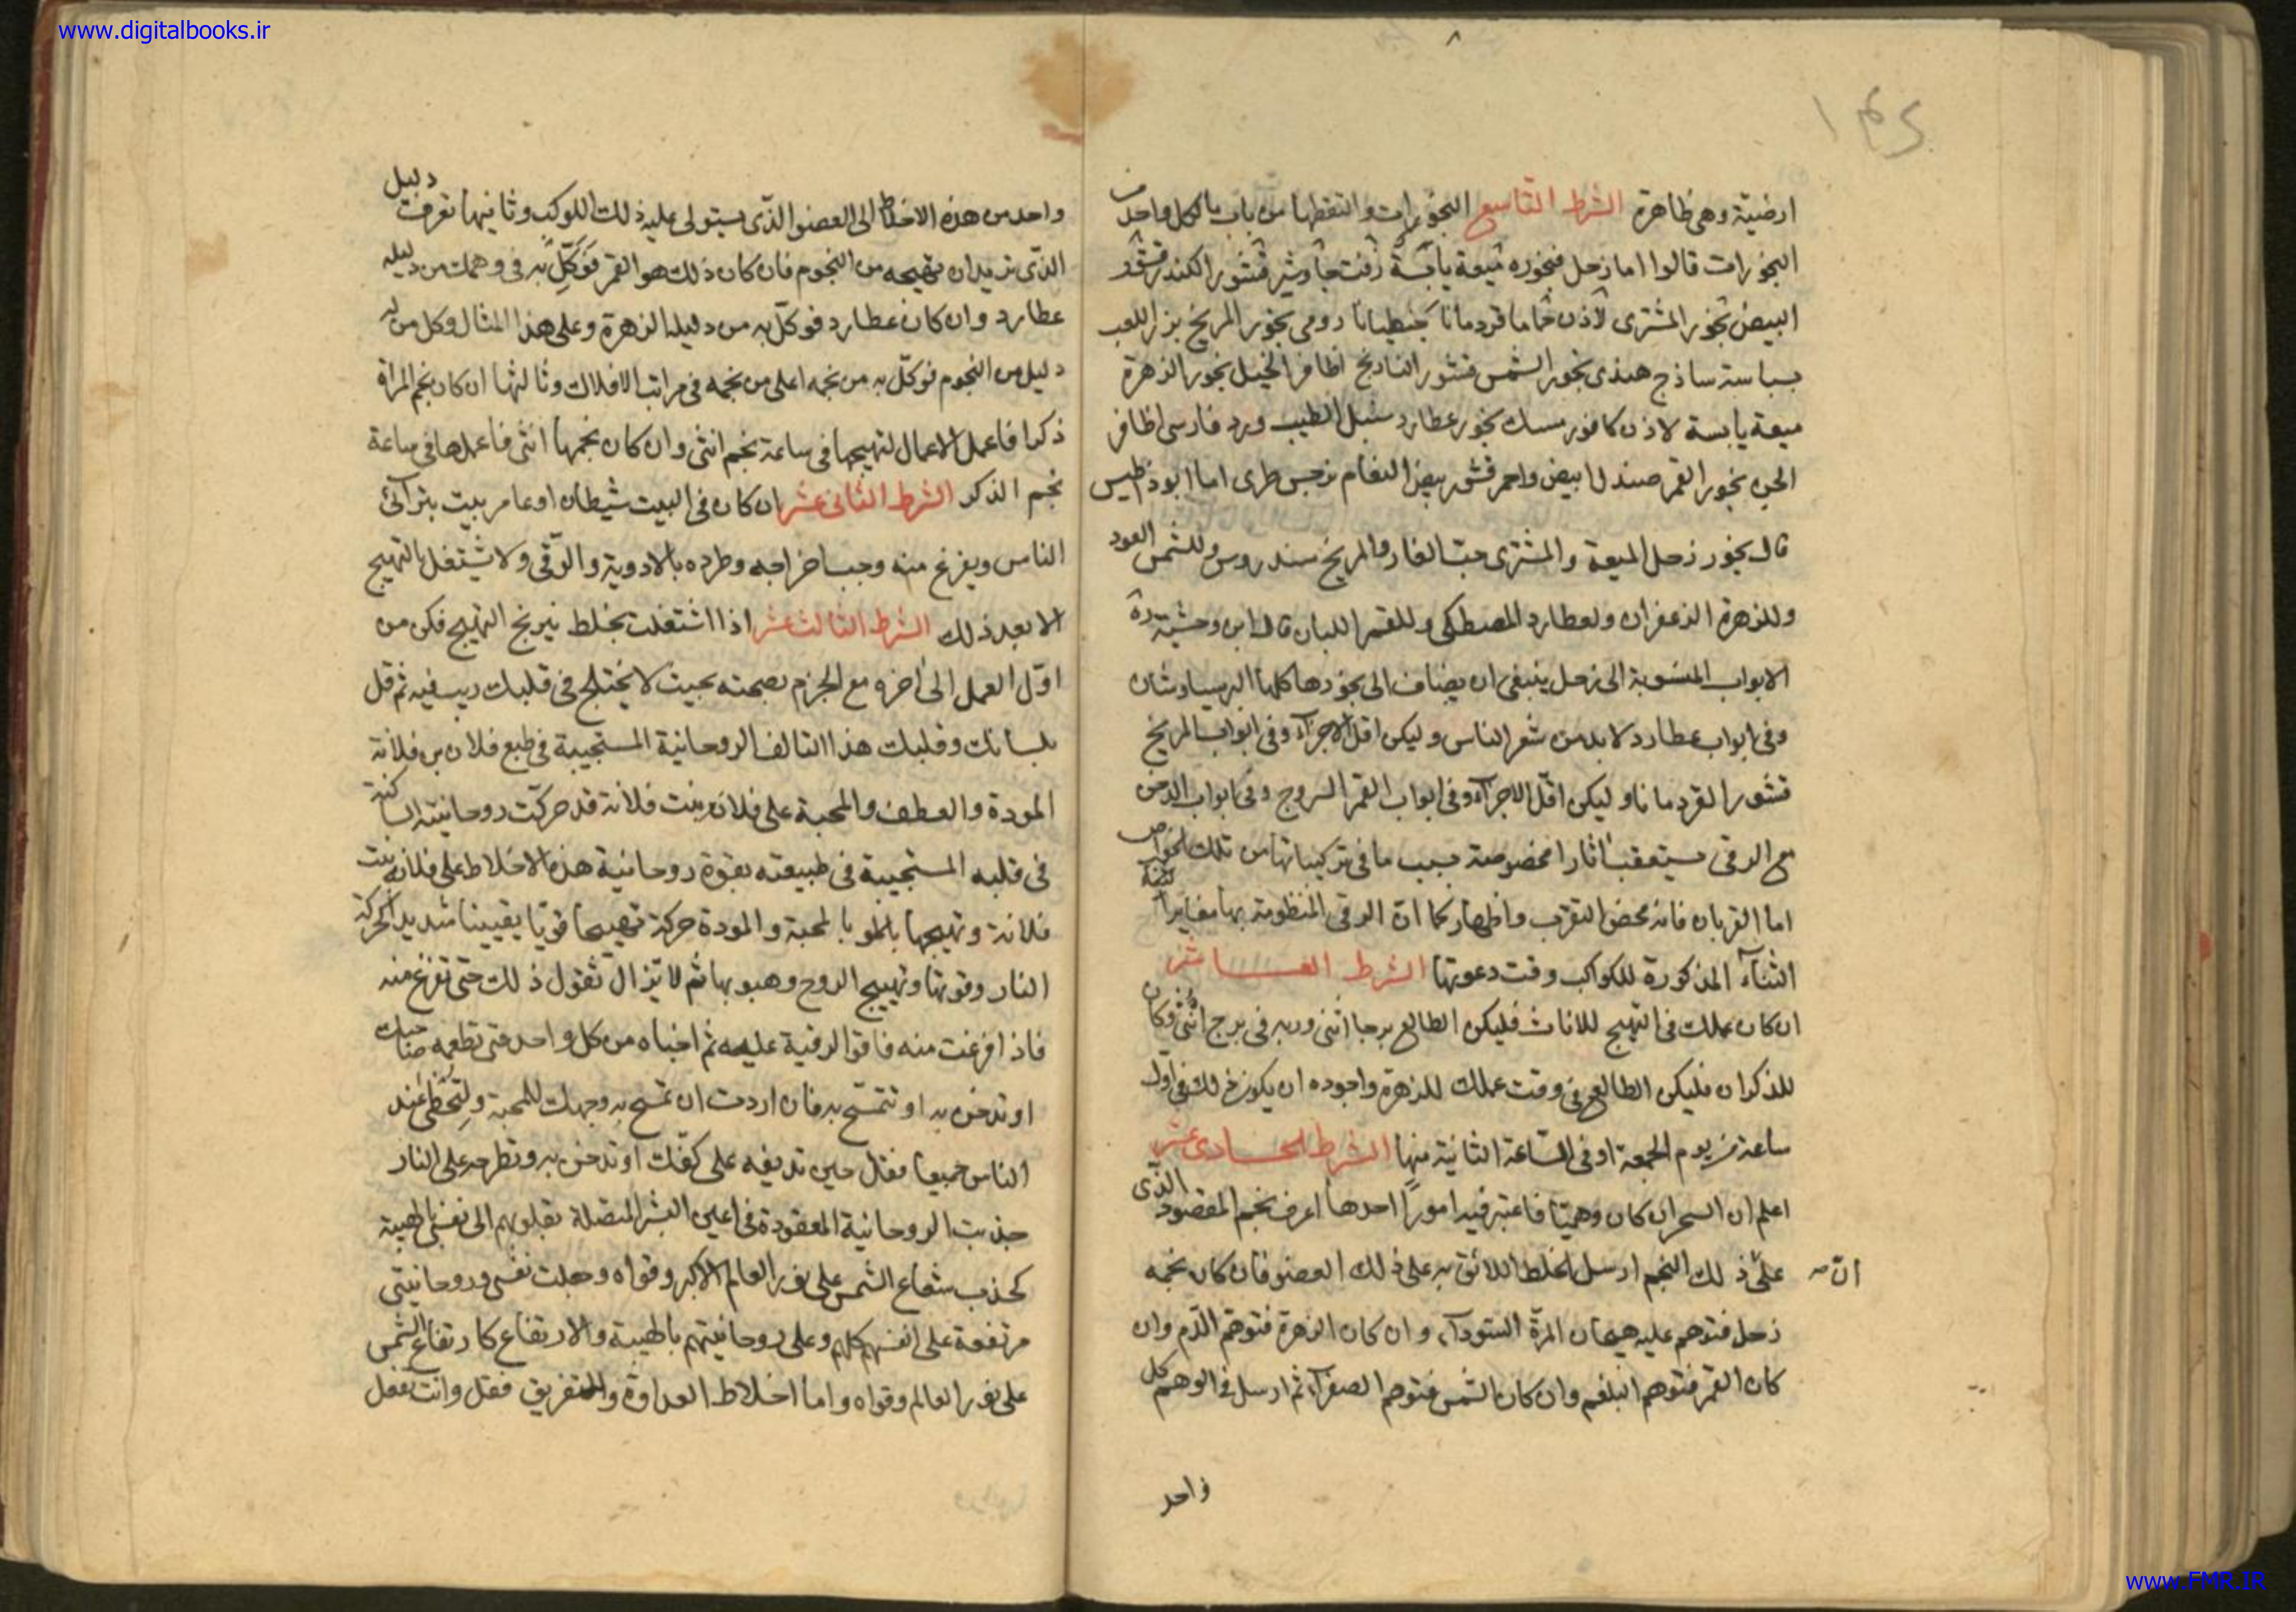 www.digitalbooks.ir
ارضية وهى ظاهرة الشرط التاسع البخورات والتقطها من باب ما لكل واحد من
البخورات قالوا اما زحل فبخوره ميعة يابسة زفت جاوشير قشور الكندر قشور
البيض بخور المشترى لاذن حماما قردمانا جنطيانا رومى بخور المريخ بزر اللعب
بسباسة ساذج هندى بخور الشمس قشور النارنج اظافر الخيل بخور الزهرة
ميعة يابسة لاذن كافور مسك بخور عطارد سنبل الطيب ورد فارسى اظافر
الجن بخور القمر صندل ابيض واحمر قشر بيض النعام نرجس طرى اما ابوذاطيس
قال بخور زحل الميعة والمشترى حب الغار والمريخ سندروس وللشمس العود
وللزهرة الزعفران ولعطارد المصطكى وللقمر اللبان قال ابن وحشية ره
الابواب المنسوبة الى زحل ينبغى ان يضاف الى بخورها كلها البرسياوشان
وفى ابواب عطارد لا بد من شعر الناس وليكن اقل الاجزآء وفى ابواب المريخ
قشور القردمانا وليكن اقل الاجزآء وفى ابواب القمر السروج وفى ابواب الدخن
مع الرقى يستعقب اثارا مخصوصة بسبب ما فى تركيباتها من تلك الخواص
اما القربان فانه محض التقرب واظهار كما ان الرقى المنظومة بها مغايرا
الثنآء المذكورة للكواكب وقت دعوتها الشرط العاشر
ان كان عملك فى التهيج للاناث فليكن الطالع برجا انثى وربه فى برج انثى وان كان
للذكران فليكن الطالع فى وقت عملك للزهرة واجوده ان يكون ذلك فى اول
ساعة من يوم الجمعة او فى الساعة الثانية منها الشرط الحادى عشر
اعلم ان السحر ان كان وهميا فاعتبر فيه امورا احدها اعرف نجم المقصود الذى
على ذلك النجم ارسل الخلط اللائق به على ذلك العضو فان كان نجمه
زحل فتوهم عليه هيجان المرة السودآء وان كان الزهرة فتوهم الدم وان
كان القمر فتوهم البلغم وان كان الشمس فتوهم الصفرآء ثم ارسل فى الوهم كل
واحد
واحد من هذه الاخلاط الى العضو الذى يستولى عليه ذلك الكوكب وثانيها تعرف دليل
الذى تريد ان تهيجه من النجوم فان كان ذلك هو القمر فوكل به فى وهمك من دليله
عطارد وان كان عطارد فوكل به من دليله الزهرة وعلى هذا المثال وكل من له
دليل من النجوم فوكل به من نجمه اعلى من نجمه فى مراتب الافلاك وثالثها ان كان نجم المراة
ذكرا فاعمل الاعمال لتهيجها فى ساعة نجم انثى وان كان نجمها انثى فاعملها فى ساعة
نجم الذكر الشرط الثانى عشر ان كان فى البيت شيطان او عامر بيت يترآئ
الناس ويفزع منه وجب اخراجه وطرده بالادوية والرقى ولا يشتغل بالتهيج
الا بعد ذلك الشرط الثالث عشر اذا اشتغلت بخلط نيرنج التهيج فكن من
اول العمل الى اخره مع الجزم بصحته بحيث لا يختلج فى قلبك ريب فيه ثم قل
بلسانك وقلبك هذا التالف الروحانية المستجيبة فى طبع فلان بن فلانة
المودة والعطف والمحبة على فلانة بنت فلانة قد حركت روحانيته الساكنة
فى قلبه المستجيبة فى طبيعته بقوة روحانية هذه الاخلاط على فلانة بنت
فلانة وتهيجها بالمحبة والمودة حركة تهيجا قويا يقيينا شديدا كحركة
النار وقوتها وتهييج الروح وهبوبها ثم لا تزال تقول ذلك حتى تفرغ منه
فاذا فرغت منه فاقرا الرقية عليه ثم اخباه من كل واحد حتى تطعمه صاحبك
او تدخن به او تتمسح به فان اردت ان تمسح به وجهك للمحبة ولتحظى عند
الناس جميعا فقل حين تديفه على كفك او تدخن به وتطرحه على النار
جذبت الروحانية المعقودة فى اعين البشر المتصلة بقلوبهم الى نفسى بالهيبة
كجذب شعاع الشمس على نور العالم الاكبر وقواه وجعلت نفسى وروحانيتى
مرتفعة على انفسهم كلهم وعلى روحانيتهم بالهيبة والارتفاع كارتفاع الشمس
على نور العالم وقواه واما اخلاط العداوة والتفريق فقل وانت تفعل
www.FMR.IR